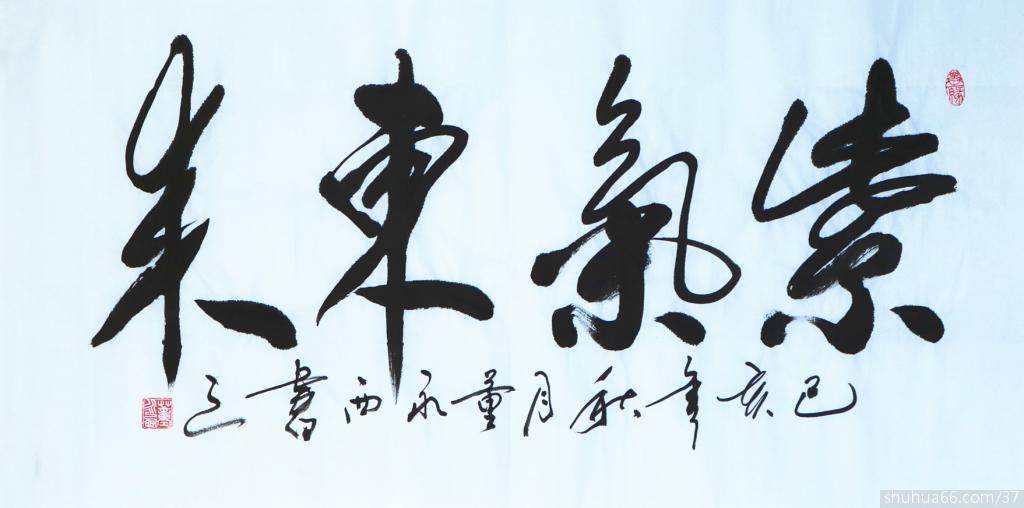 紫氣東來
己亥年秋月董永西書之
shuhua66.com/37